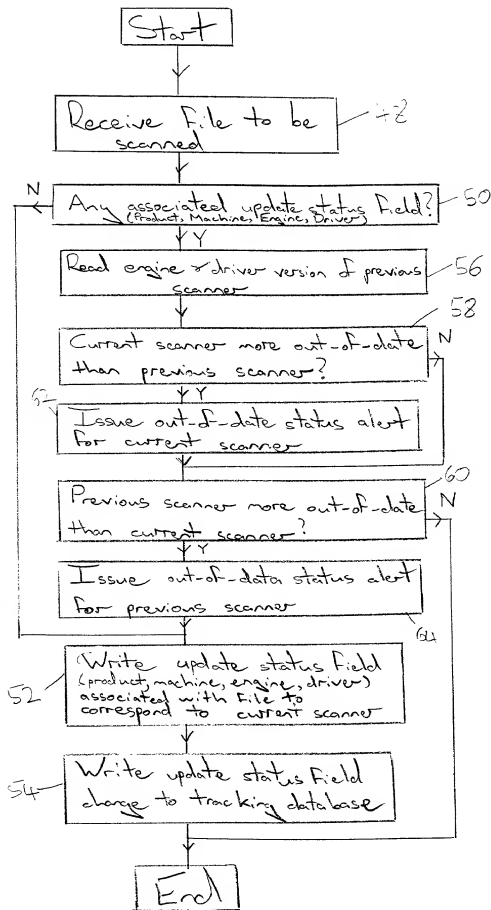 Start
Receive File to be
scanned
48
N
Any associated update status field?
(Product, Machine, Engine, Driver)
50
Y
Read engine & driver version of previous
scanner
56
58
Current scanner more out-of-date
than previous scanner?
N
Y
Issue out-of-date status alert
for current scanner
60
Previous scanner more out-of-date
than current scanner?
N
Y
Issue out-of-data status alert
for previous scanner
64
Write update status field
(product, machine, engine, driver)
associated with File to
correspond to current scanner
52
Write update status field
change to tracking database
54
End